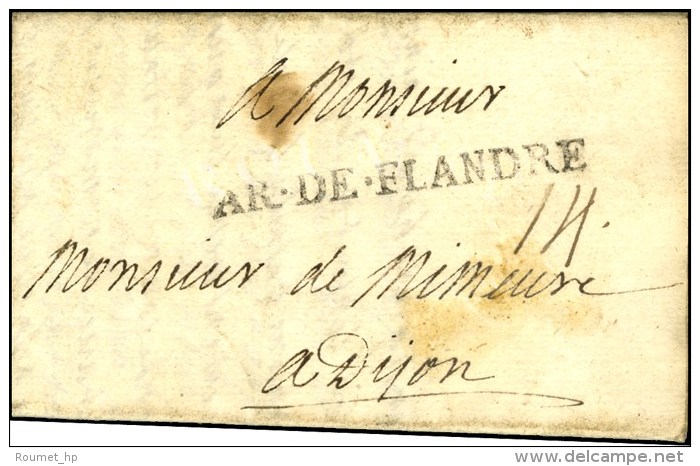 A Monsieur
AR·DE·FLANDRE
14.
Monsieur de Mimeure
a Dijon
Roumet_hp
delcampe.net